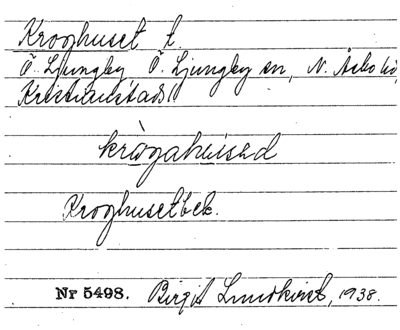 Kroghuset t.
Ö. Ljungby Ö. Ljungby sn, N. Åsbo hd,
Kristianstads l
krògahuisəd
Kroghuset bek.
Nr 5498. Birgit Lundkvist, 1938.